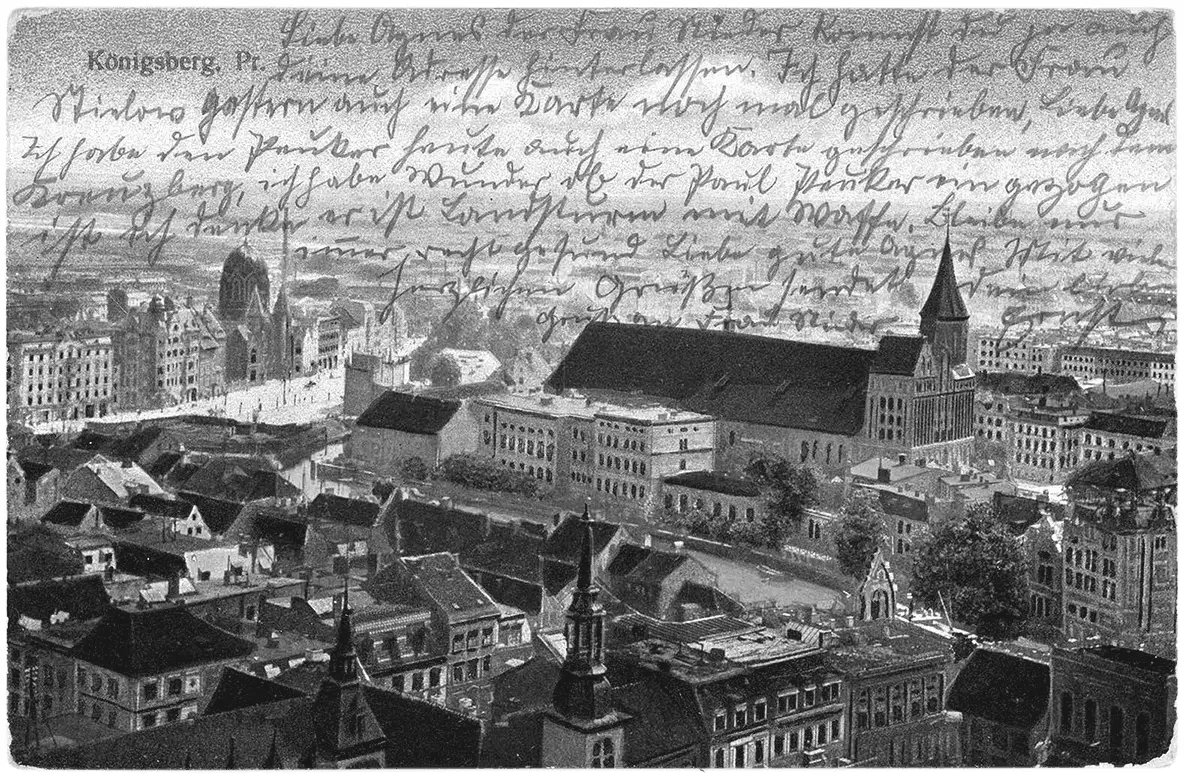 Liebe Agnes der Frau Nieder kannst du ja auch
Königsberg, Pr.
deine Adresse hinterlassen. Ich hatte der Frau
Stielow gestern auch eine Karte noch mal geschrieben, Liebe Agnes
Ich habe den Peuker heute auch eine Karte geschrieben nach dem
Kreuzberg, ich habe Wunder ob der Paul Peuker ein gezogen
ist Ich denke er ist Landsturm mit Waffe. Bleibe nur
immer recht gesund Liebe gute Agnes Mit viele
herzlichen Grüßen sendet dein lieber
Gruß an Frau Nieder Ernst